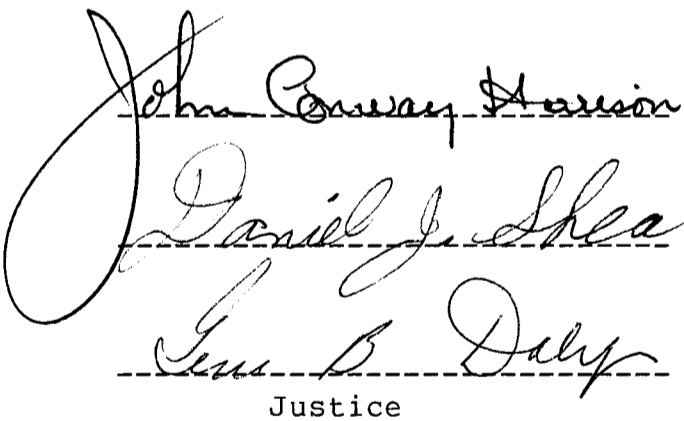 John Conway Harrison
Daniel J. Shea
Gene B Daly
Justice